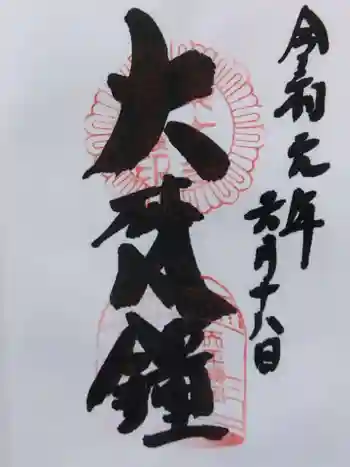 令和元年
六月十八日
大梵鐘